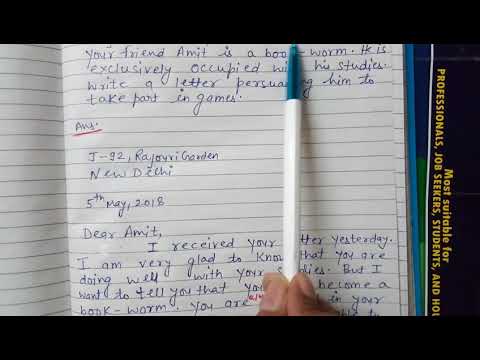 your friend Amit is a book-worm. He is
exclusively occupied with his studies.
Write a letter persuading him to
take part in games.
Ans.
J-92, Rajouri Garden
New Delhi
5th May, 2018
Dear Amit,
I received your letter yesterday.
I am very glad to know that you are
doing well with your studies. But I
want to tell you that you become a
book-worm. You are in your
to
Most suitable for
PROFESSIONALS, JOB SEEKERS, STUDENTS, AND